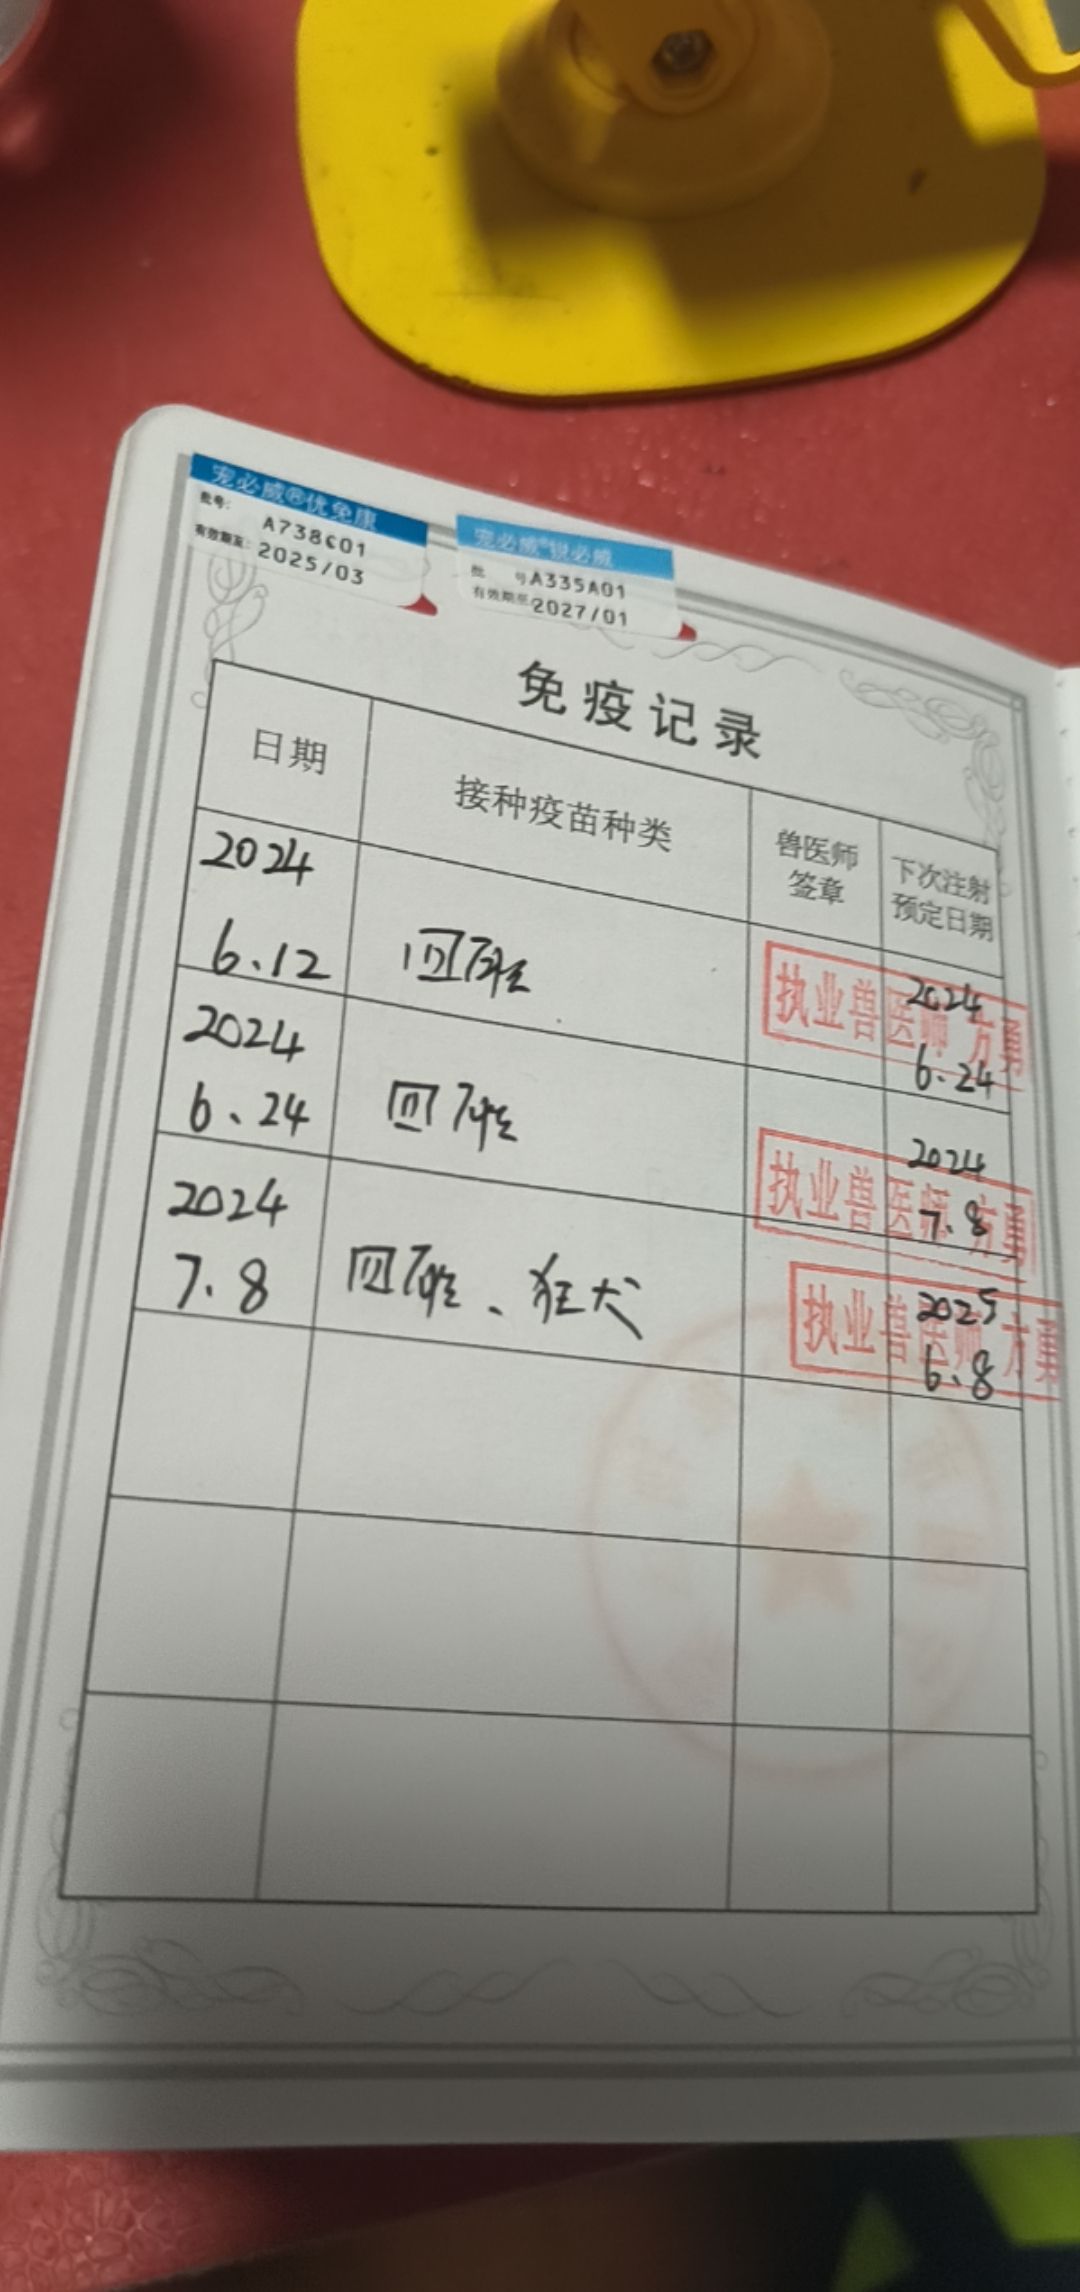 宠必威®优免康
批号: A738C01
有效期至: 2025/03
宠必威®锐必威
批 号A335A01
有效期至2027/01
免疫记录
日期
接种疫苗种类
兽医师
签章
下次注射
预定日期
2024
6.12
四联
执业兽医师 方勇
2024
6.24
2024
6.24
四联
执业兽医师 方勇
2024
7.8
2024
7.8
四联、狂犬
执业兽医师 方勇
2025
6.8